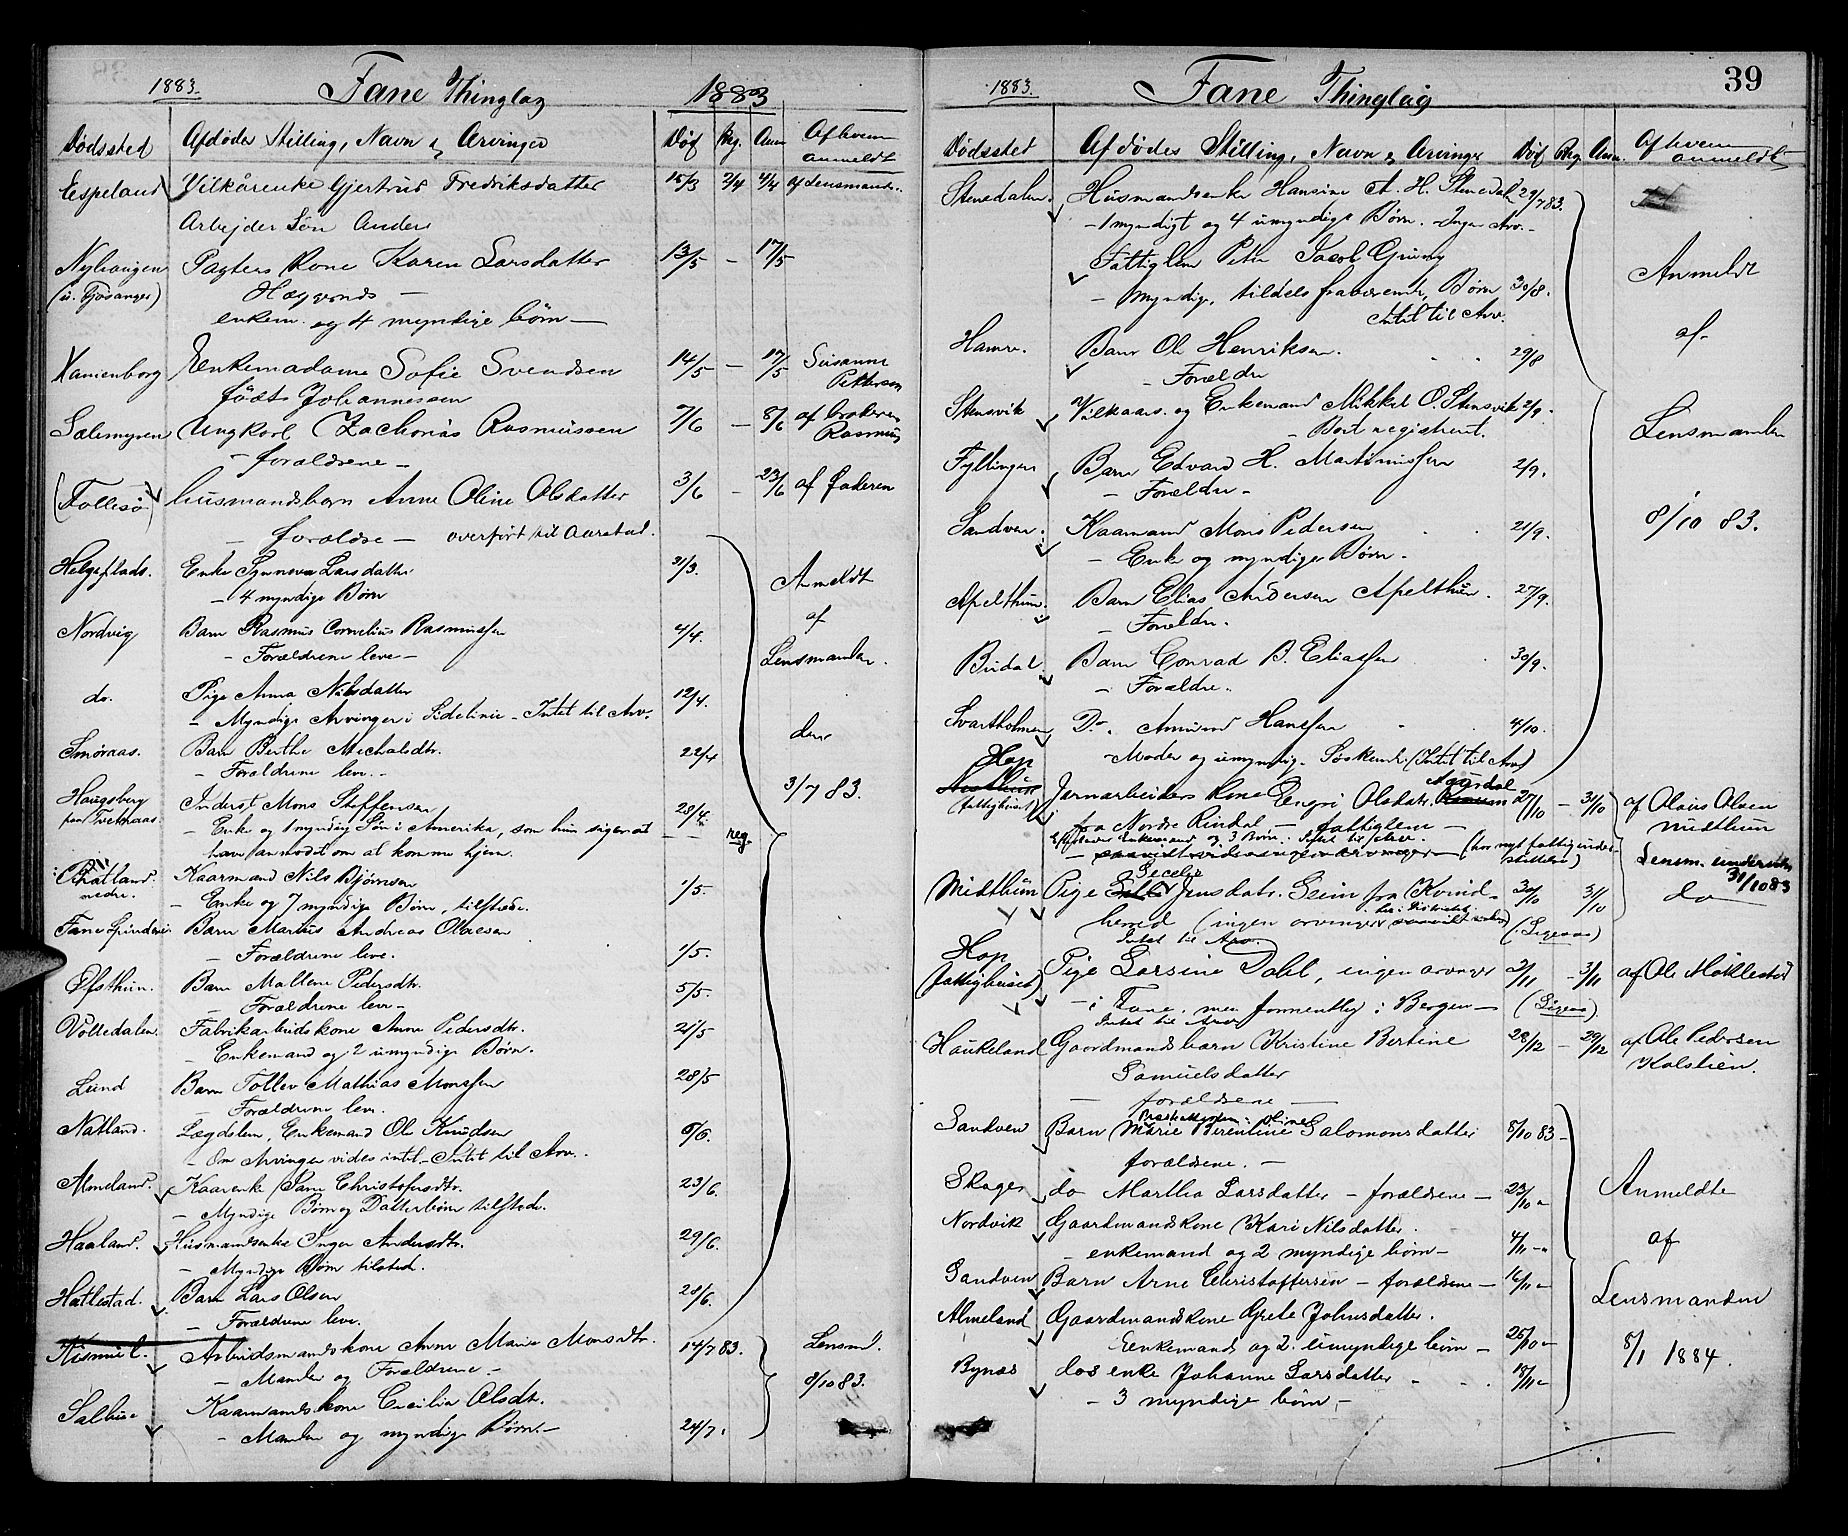 1883. Fane Thinglag 1883
Dødssted Afdødes Stilling, Navn & Arvinger Død Reg. Anm Af hvem anmeldt
Espeland Vilkårenke Gjertrud Fredriksdatter 15/3 2/4 4/4 af Lensmand
Arbejder Søn Anders
Nyhaugen Pagters Kone Karen Larsdatter 13/5 - 17/5
(u. Fjøsanger)
enkem. og 4 myndige børn -
Enkemadame Sofie Svendsen 14/5 - 17/5 Susanne Pettersen
født Johannessen
Sælemyren Ungkarl Zacharias Rasmussen 7/6 - 8/6 af broderen Rasmus
- forældrene -
(Follesø) husmandsbarn Anne Oline Olsdatter 3/6 - 23/6 af faderen
- forældre - overført til Aarstad.
Enke Synneva Larsdatter 31/3.
- 4 myndige Børn
Anmeldt af Lensmanden den 3/7 83.
Nordvig Barn Rasmus Cornelius Rasmussen 4/4.
- Forældrene leve -
do. Pige Anna Nilsdatter 12/4.
- Myndige Arvinger i Sidelinie - Intet til Arv.
Smøraas. Barn Berthe Michalsdtr. 22/4
- Forældrene leve. -
Haugsberg Inderst Mons Steffensen 28/4.
- Enke og 1 myndig Søn i Amerika, som hun siger at - - reg.
have anmodet om at komme hjem.
nedre. Kaarmand Nils Bjørnsen 1/5.
- Enke og 7 myndige Børn, tilstede.
Barn Martius Andreas Olaesen 1/5.
- Forældrene leve.
Øfsthun. Barn Maltene Pedersdtr. 5/5.
- Forældrene leve -
Fabrikarbeids kone Anne Pedersdtr. 21/5
- Enkemand og 2 umyndige Børn.
Lund Barn Tollev Mathias Monssen 28/5
- Forældrene leve.
Natland. Lægdslem, Enkemand Ole Knudsen 6/6.
- Om Arvinger vides intet - Intet til Arv.
Almeland. Kaarenke Christofersdtr. 23/6.
- Myndige Børn og Datterbørn tilstede.
Haaland. Husmandsenke Inger Andersdtr. 29/6.
- Myndige Børn tilsted.
Hatlestad. Barn Lars Olsen 28/6.
- Forældrene leve.
Arbeidsmandskone Anne Marie Monsdtr. 14/7 83. Lensmd.
- Manden og Forældrene - 9/10 83.
Kaarmandskone Cecilia Olsdtr.
- Manden og myndige Børn. - 24/7.
1883. Fane Thinglag 39
Dødssted Afdødes Stilling, Navn & Arvinge Død Reg Anm. Af hvem anmeldt
Stenedalen. Husmandsenke Hansine A. H. Stenedalen 29/7 83.
- 1 myndigt og 4 umyndige Børn. - Ingen Arv. -
Fattiglem Peter Jacob Grung
- Myndige, tildels fraværende, Børn 30/8.
Intet til Arv.
Hamre. Barn Ole Henriksen. 29/8
- Forældre
Stensvik Vilkaars. og Enkemand Mikkel O. Stensvik 2/9.
- Bort registreret.
Fyllingen Barn Edvard H. Martinussen 2/9.
- Forældre -
Sandven. Kaarmand Mons Pedersen 21/9.
- Enke og myndige Børn.
Apelthun. Barn Elias Andersen Apelthun. 27/9.
- Forældre.
Birdal. Barn Conrad B. Eliassen 30/9.
- Forældre.
Svartholmen Do. Amund Hanssen 4/10.
- Moder og umyndig. Søskende. (Intet til Arv)
Anmeldt af Lensmanden 8/10 83.
Hop
(fattighuset) Jernarbeiders kone Engri Olsdatr. Aagedal 27/10 - 31/10 af Olaus Olsen Midthun
fra Nordre Rindal - fattiglem -
Efterlever Enkemand og 3 Børn. Intet til Arv.
Lensm. 31/10 83
Midthun Pige Secelie Jensdatr. Seim fra Kvind- 30/10 31/10 do
herred (ingen arvinger her i Distriktet
Intet til Arv. (Ligesaa)
Hop
(fattighuset) Pige Larsine Dahl, ingen arvinger 2/11 - 3/11 af Ole Møkllestad
- i Fane, men formentlig i Bergen - (Ligesaa)
Intet til Arv
Haukeland Gaardmandsbarn Kristine Bertine 28/12 - 29/12 af Ole Pedersen Kalstien.
Samuelsdatter
- forældrene -
Sandven Barn Marie Berentine Oline Salomonsdatter 8/10 83 -
forældrene. -
Skage do Martha Larsdatter - forældrene - 23/10 -
Nordvik Gaardmandskone Kari Nilsdatter. 4/11 -
- enkemand og 2 myndige børn -
Sandven Barn Arne Christoffersen - forældrene - 16/11 -
Almeland Gaardmandskone Grete Johnsdatter.
Enkemand og 2 umyndige børn - 26/10 -
Bynæs dos enke Johanne Larsdatter 18/11 -
- 3 myndige børn -
Anmeldte af Lensmanden 8/1 1884.